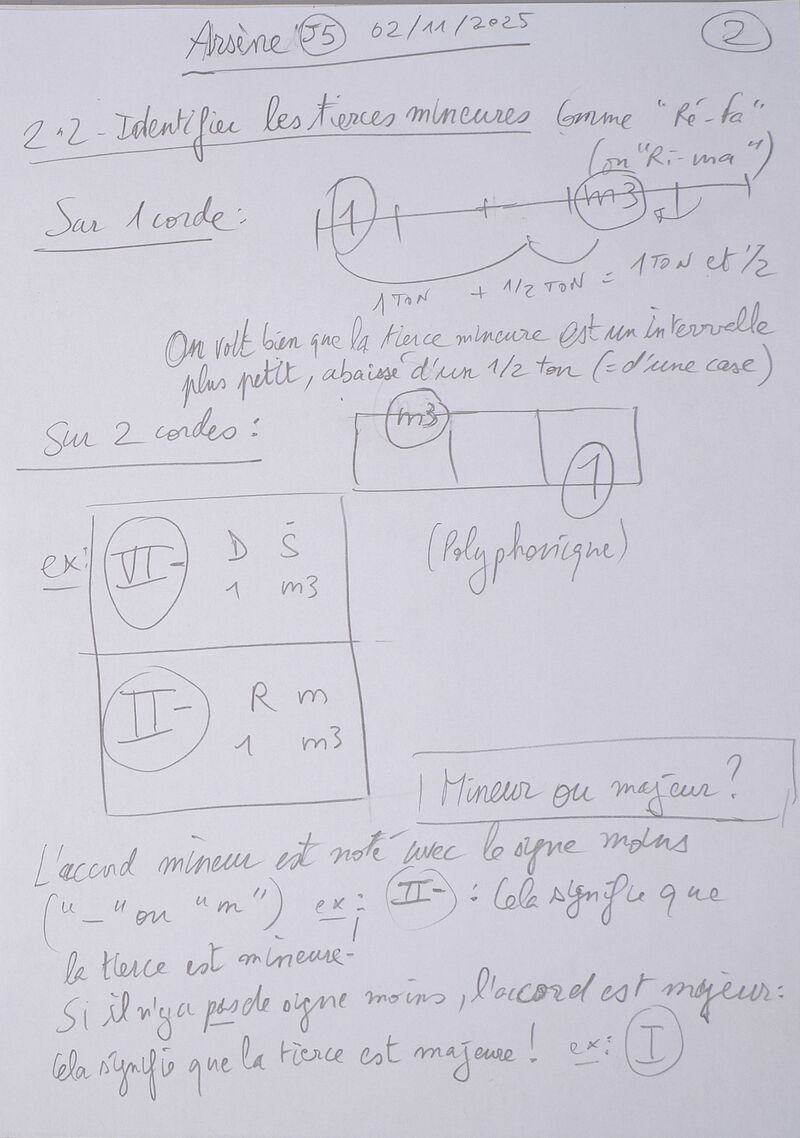 Arsène J5 02/11/2025
2
2.2 - Identifier les tierces mineures Comme "Ré-fa"
(ou "Ri-ma")
Sur 1 corde :
1 m3
1 TON + 1/2 TON = 1 TON et 1/2
On voit bien que la tierce mineure est un intervvelle
plus petit, abaissé d'un 1/2 ton (= d'une case)
Sur 2 cordes :
m3
1
(Polyphonicque)
ex: VI- D S
1 m3
II- R m
1 m3
Mineur ou majeur ?
L'accord mineur est noté avec le signe moins
("-" ou "m") ex: II- : Cela signifie que
la tierce est mineure.
Si il n'y a pas de signe moins, l'accord est majeur :
Cela signifie que la tierce est majeure ! ex: I